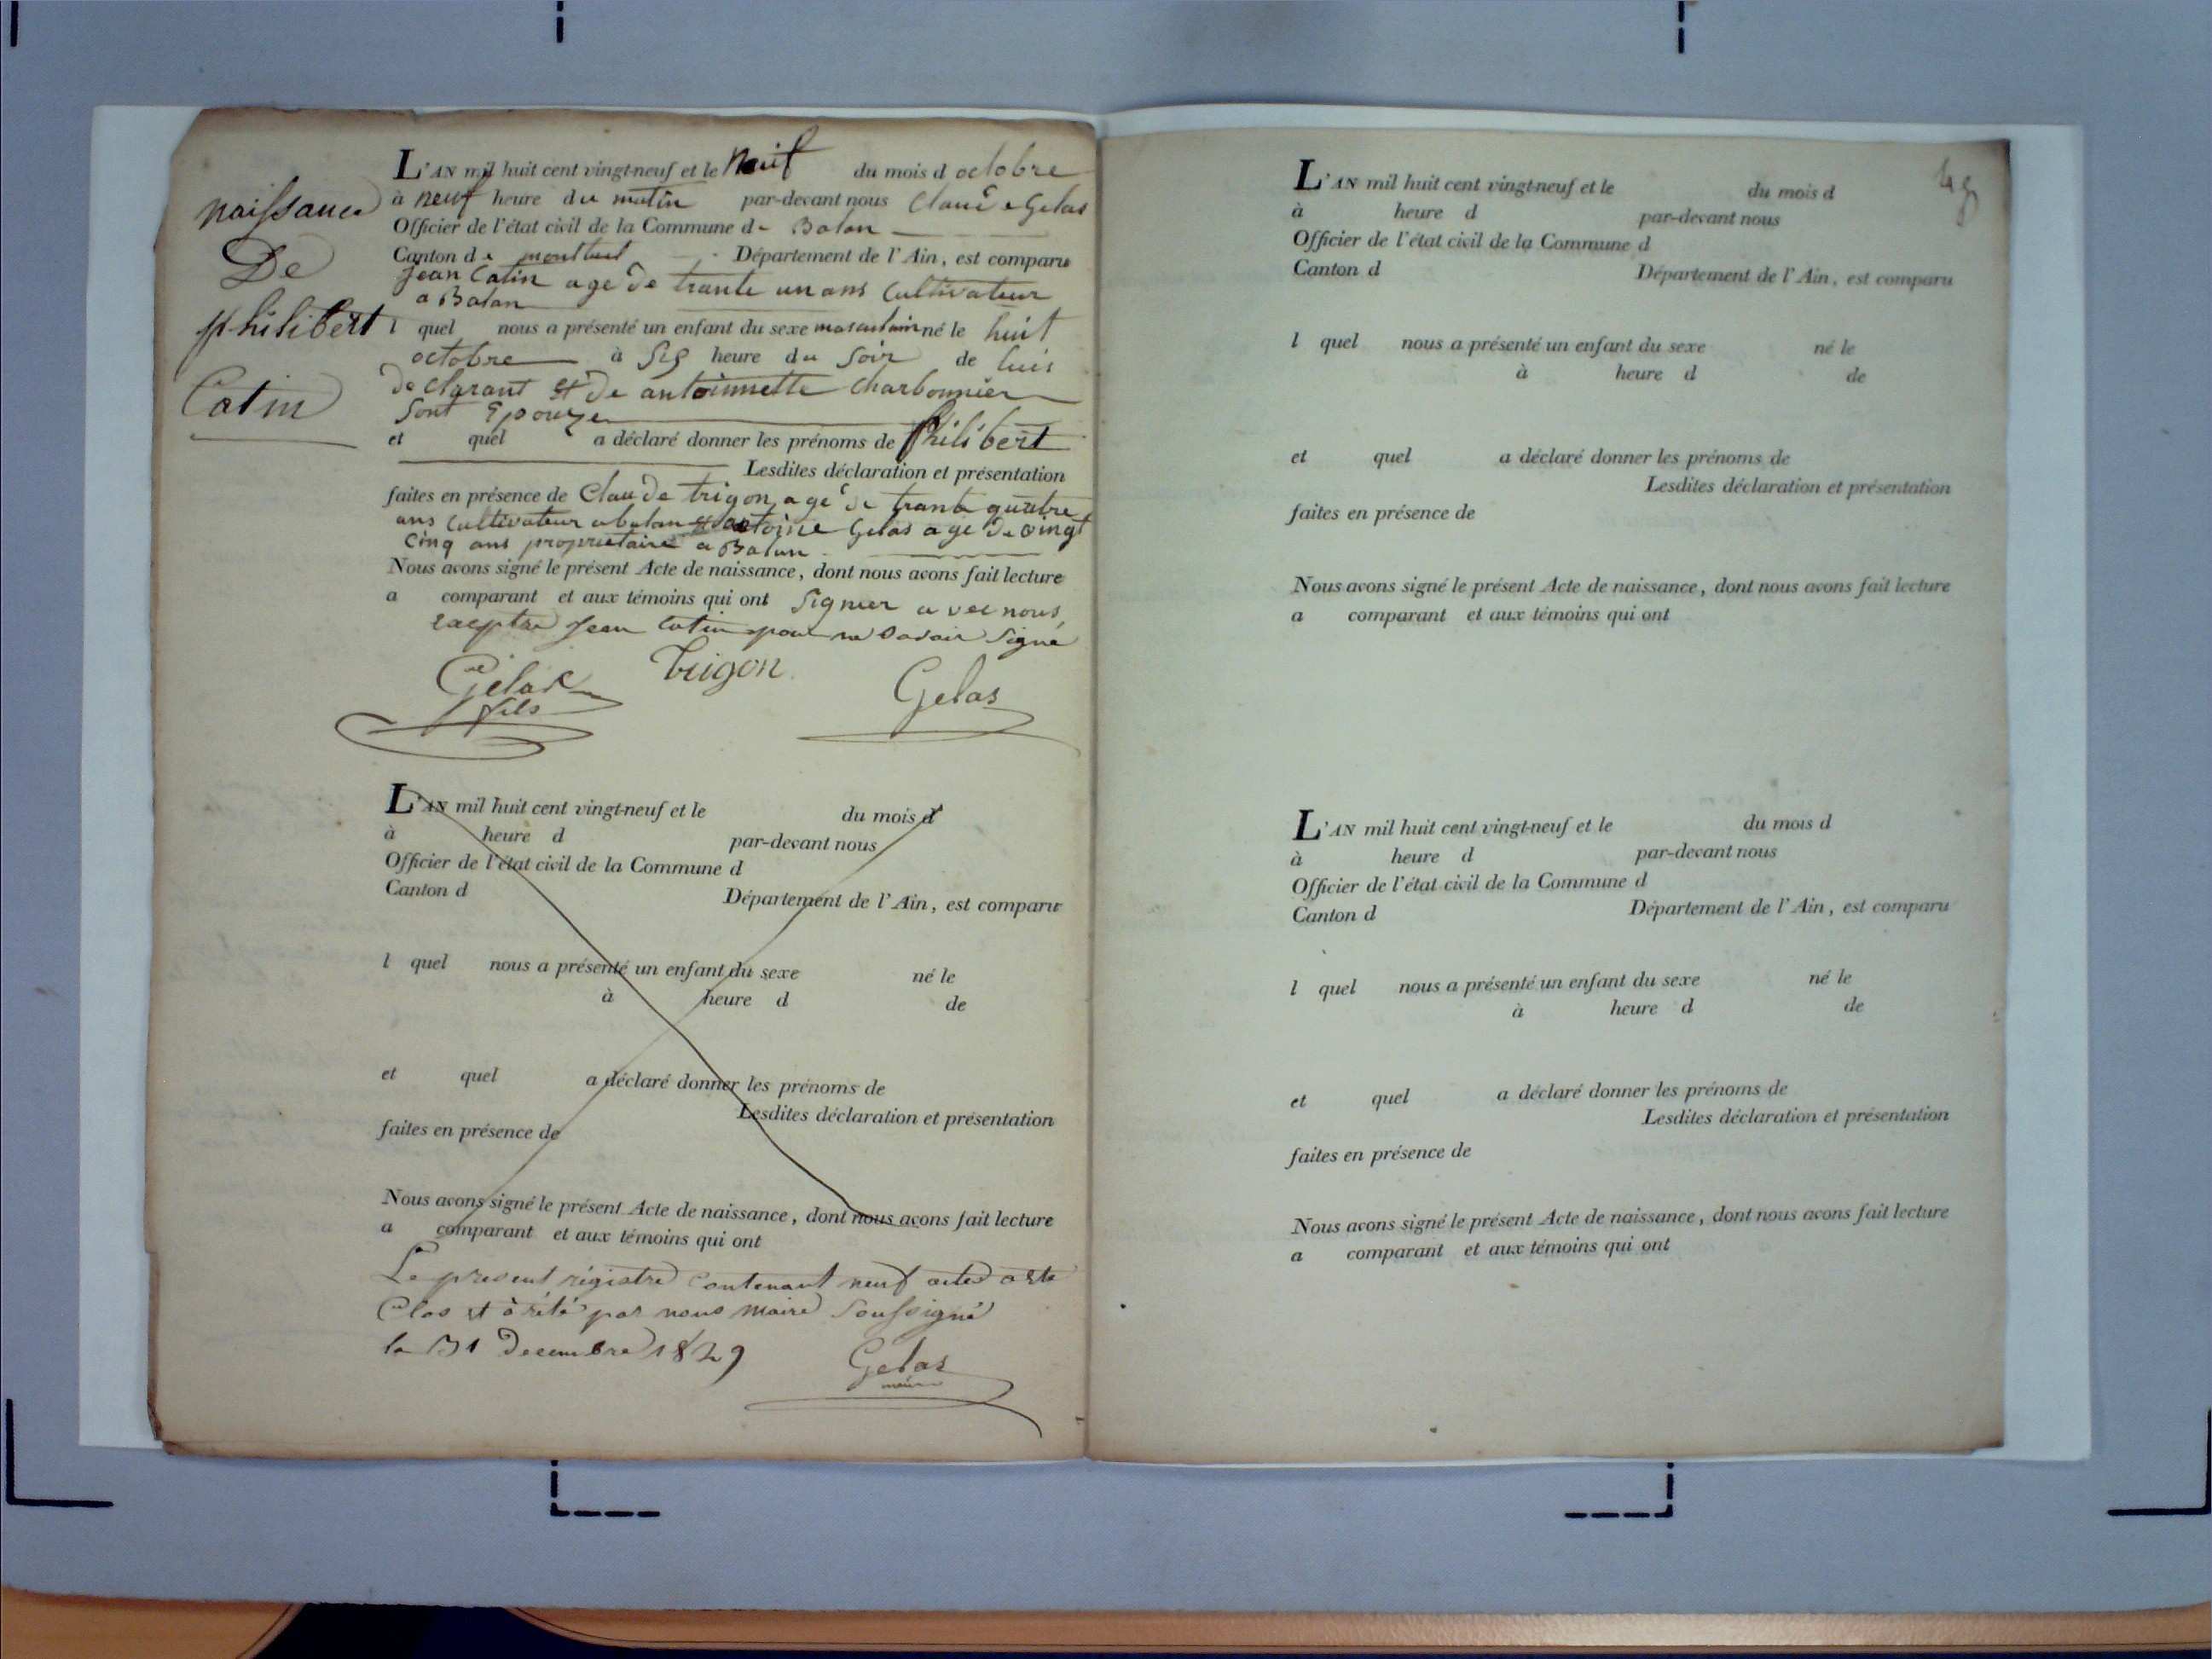 naissance
De
philibert
Catin
L'AN mil huit cent vingt-neuf et le neuf du mois d octobre
à neuf heure du matin par-devant nous Claude Gelas
Officier de l'état civil de la Commune de Balan
Canton de montluel Département de l'Ain, est comparu
Jean Catin age de trante un ans Cultivateur
a Balan
l quel nous a présenté un enfant du sexe masculain né le huit
octobre à Sis heure du Soir de luis
declarant et de antoinnette Charbonnier
Sont Epouze
et quel a déclaré donner les prénoms de Philibert
Lesdites déclaration et présentation
faites en présence de Claude trigon age de trante quatre
ans Cultivateur a balan et antoine Gelas age de vingt
Cinq ans proprietaire a Balan
Nous avons signé le présent Acte de naissance, dont nous avons fait lecture
a comparant et aux témoins qui ont Signer avec nous
Jean Catin pour ne Savoir Signé
Gelas fils
Trigon
Gelas
L'AN mil huit cent vingt-neuf et le du mois d
à heure d par-devant nous
Officier de l'état civil de la Commune d
Canton d Département de l'Ain, est comparu
l quel nous a présenté un enfant du sexe né le
à heure d de
et quel a déclaré donner les prénoms de
Lesdites déclaration et présentation
faites en présence de
Nous avons signé le présent Acte de naissance, dont nous avons fait lecture
a comparant et aux témoins qui ont
Le present régistre Contenant neuf actes
Clos et arété par nous Maire Soussigné
le 31 Decembre 1829
Gelas
maire
L'AN mil huit cent vingt-neuf et le du mois d
à heure d par-devant nous
Officier de l'état civil de la Commune d
Canton d Département de l'Ain, est comparu
l quel nous a présenté un enfant du sexe né le
à heure d de
et quel a déclaré donner les prénoms de
Lesdites déclaration et présentation
faites en présence de
Nous avons signé le présent Acte de naissance, dont nous avons fait lecture
a comparant et aux témoins qui ont
L'AN mil huit cent vingt-neuf et le du mois d
à heure d par-devant nous
Officier de l'état civil de la Commune d
Canton d Département de l'Ain, est comparu
l quel nous a présenté un enfant du sexe né le
à heure d de
et quel a déclaré donner les prénoms de
Lesdites déclaration et présentation
faites en présence de
Nous avons signé le présent Acte de naissance, dont nous avons fait lecture
a comparant et aux témoins qui ont